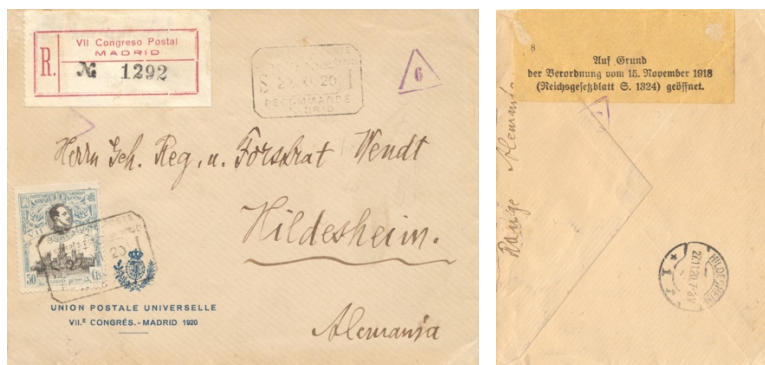 VII Congreso Postal
MADRID
R. № 1292
RECOMMANDÉ
6
Herrn Geh. Reg. u. Forstrat Wendt
Hildesheim.
50 Cts
UNION POSTALE UNIVERSELLE
VII.E CONGRÉS.-MADRID 1920
Alemania
8
Auf Grund
der Verordnung vom 15. November 1918
(Reichsgesetzblatt S. 1324) geöffnet.
Alemania
HILDESHEIM